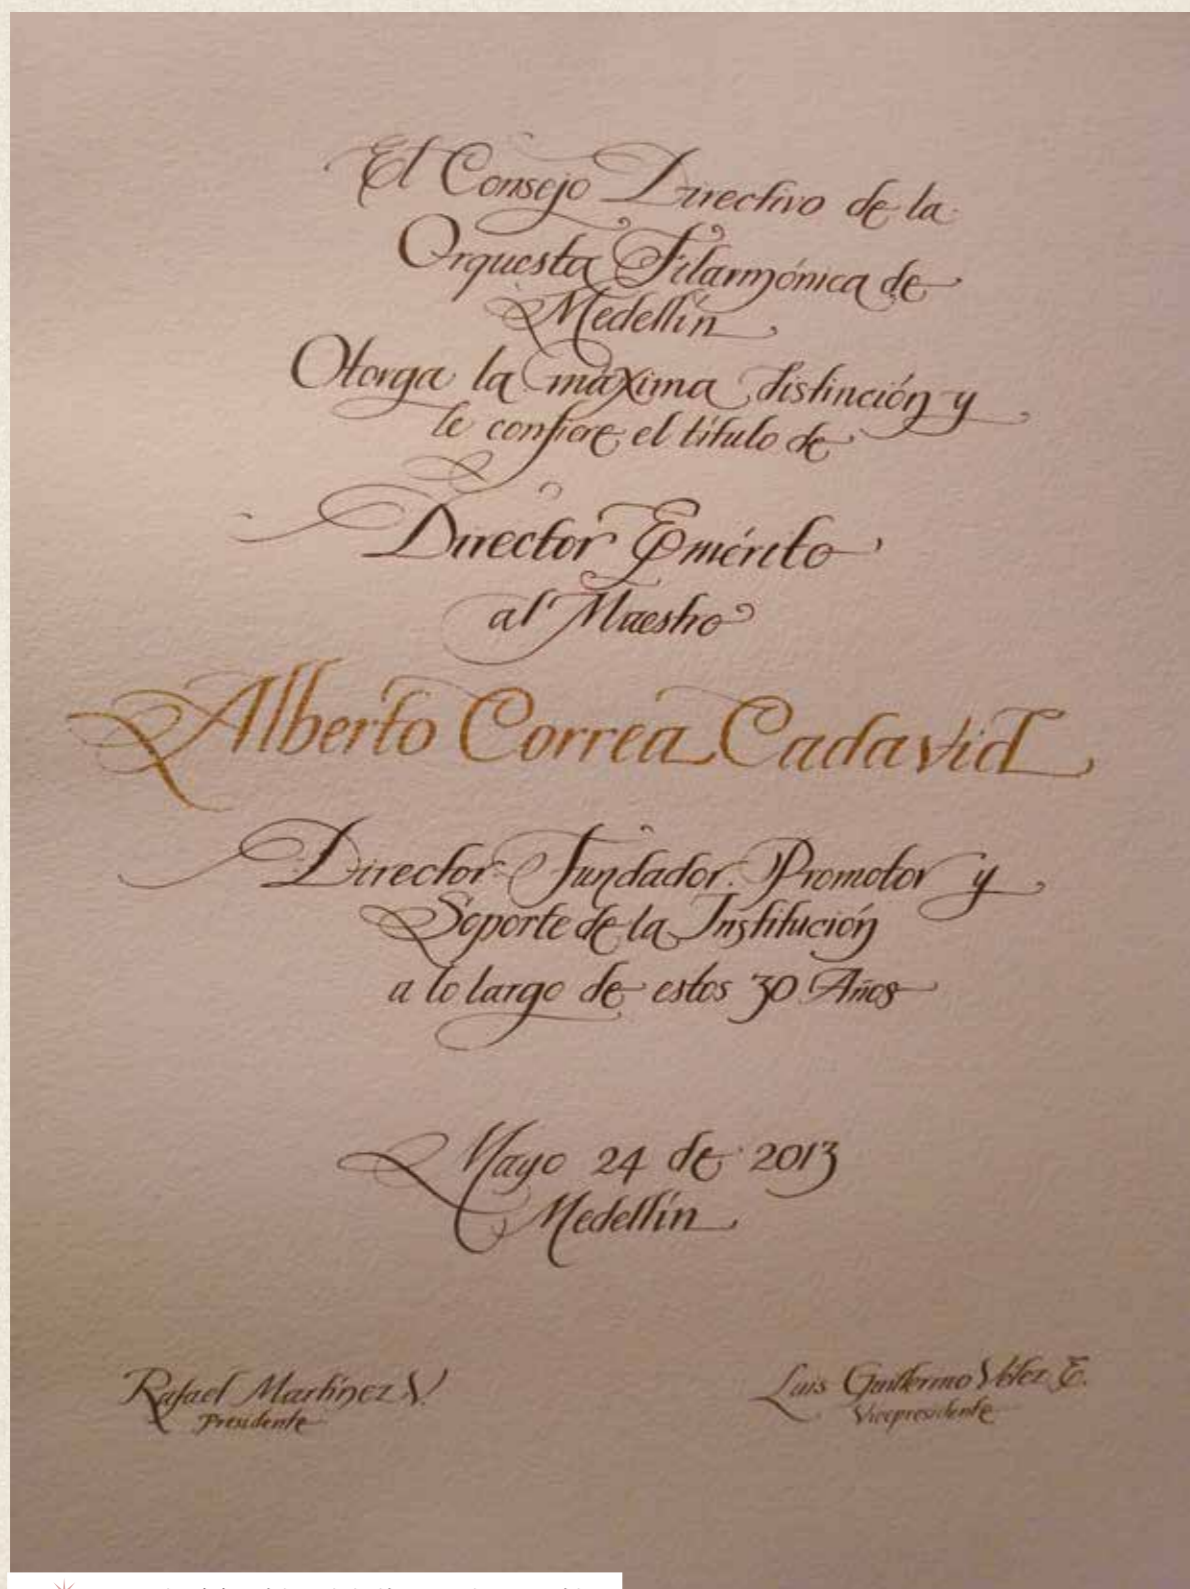 El Consejo Directivo de la
Orquesta Filarmónica de
Medellín
Otorga la máxima distinción y
le confiere el título de
Director Emérito
al Maestro
Alberto Correa Cadavid
Director Fundador, Promotor y
Soporte de la Institución
a lo largo de estos 30 Años
Mayo 24 de 2013
Medellín
Rafael Martínez V.
Presidente
Luis Guillermo Vélez E.
Vicepresidente